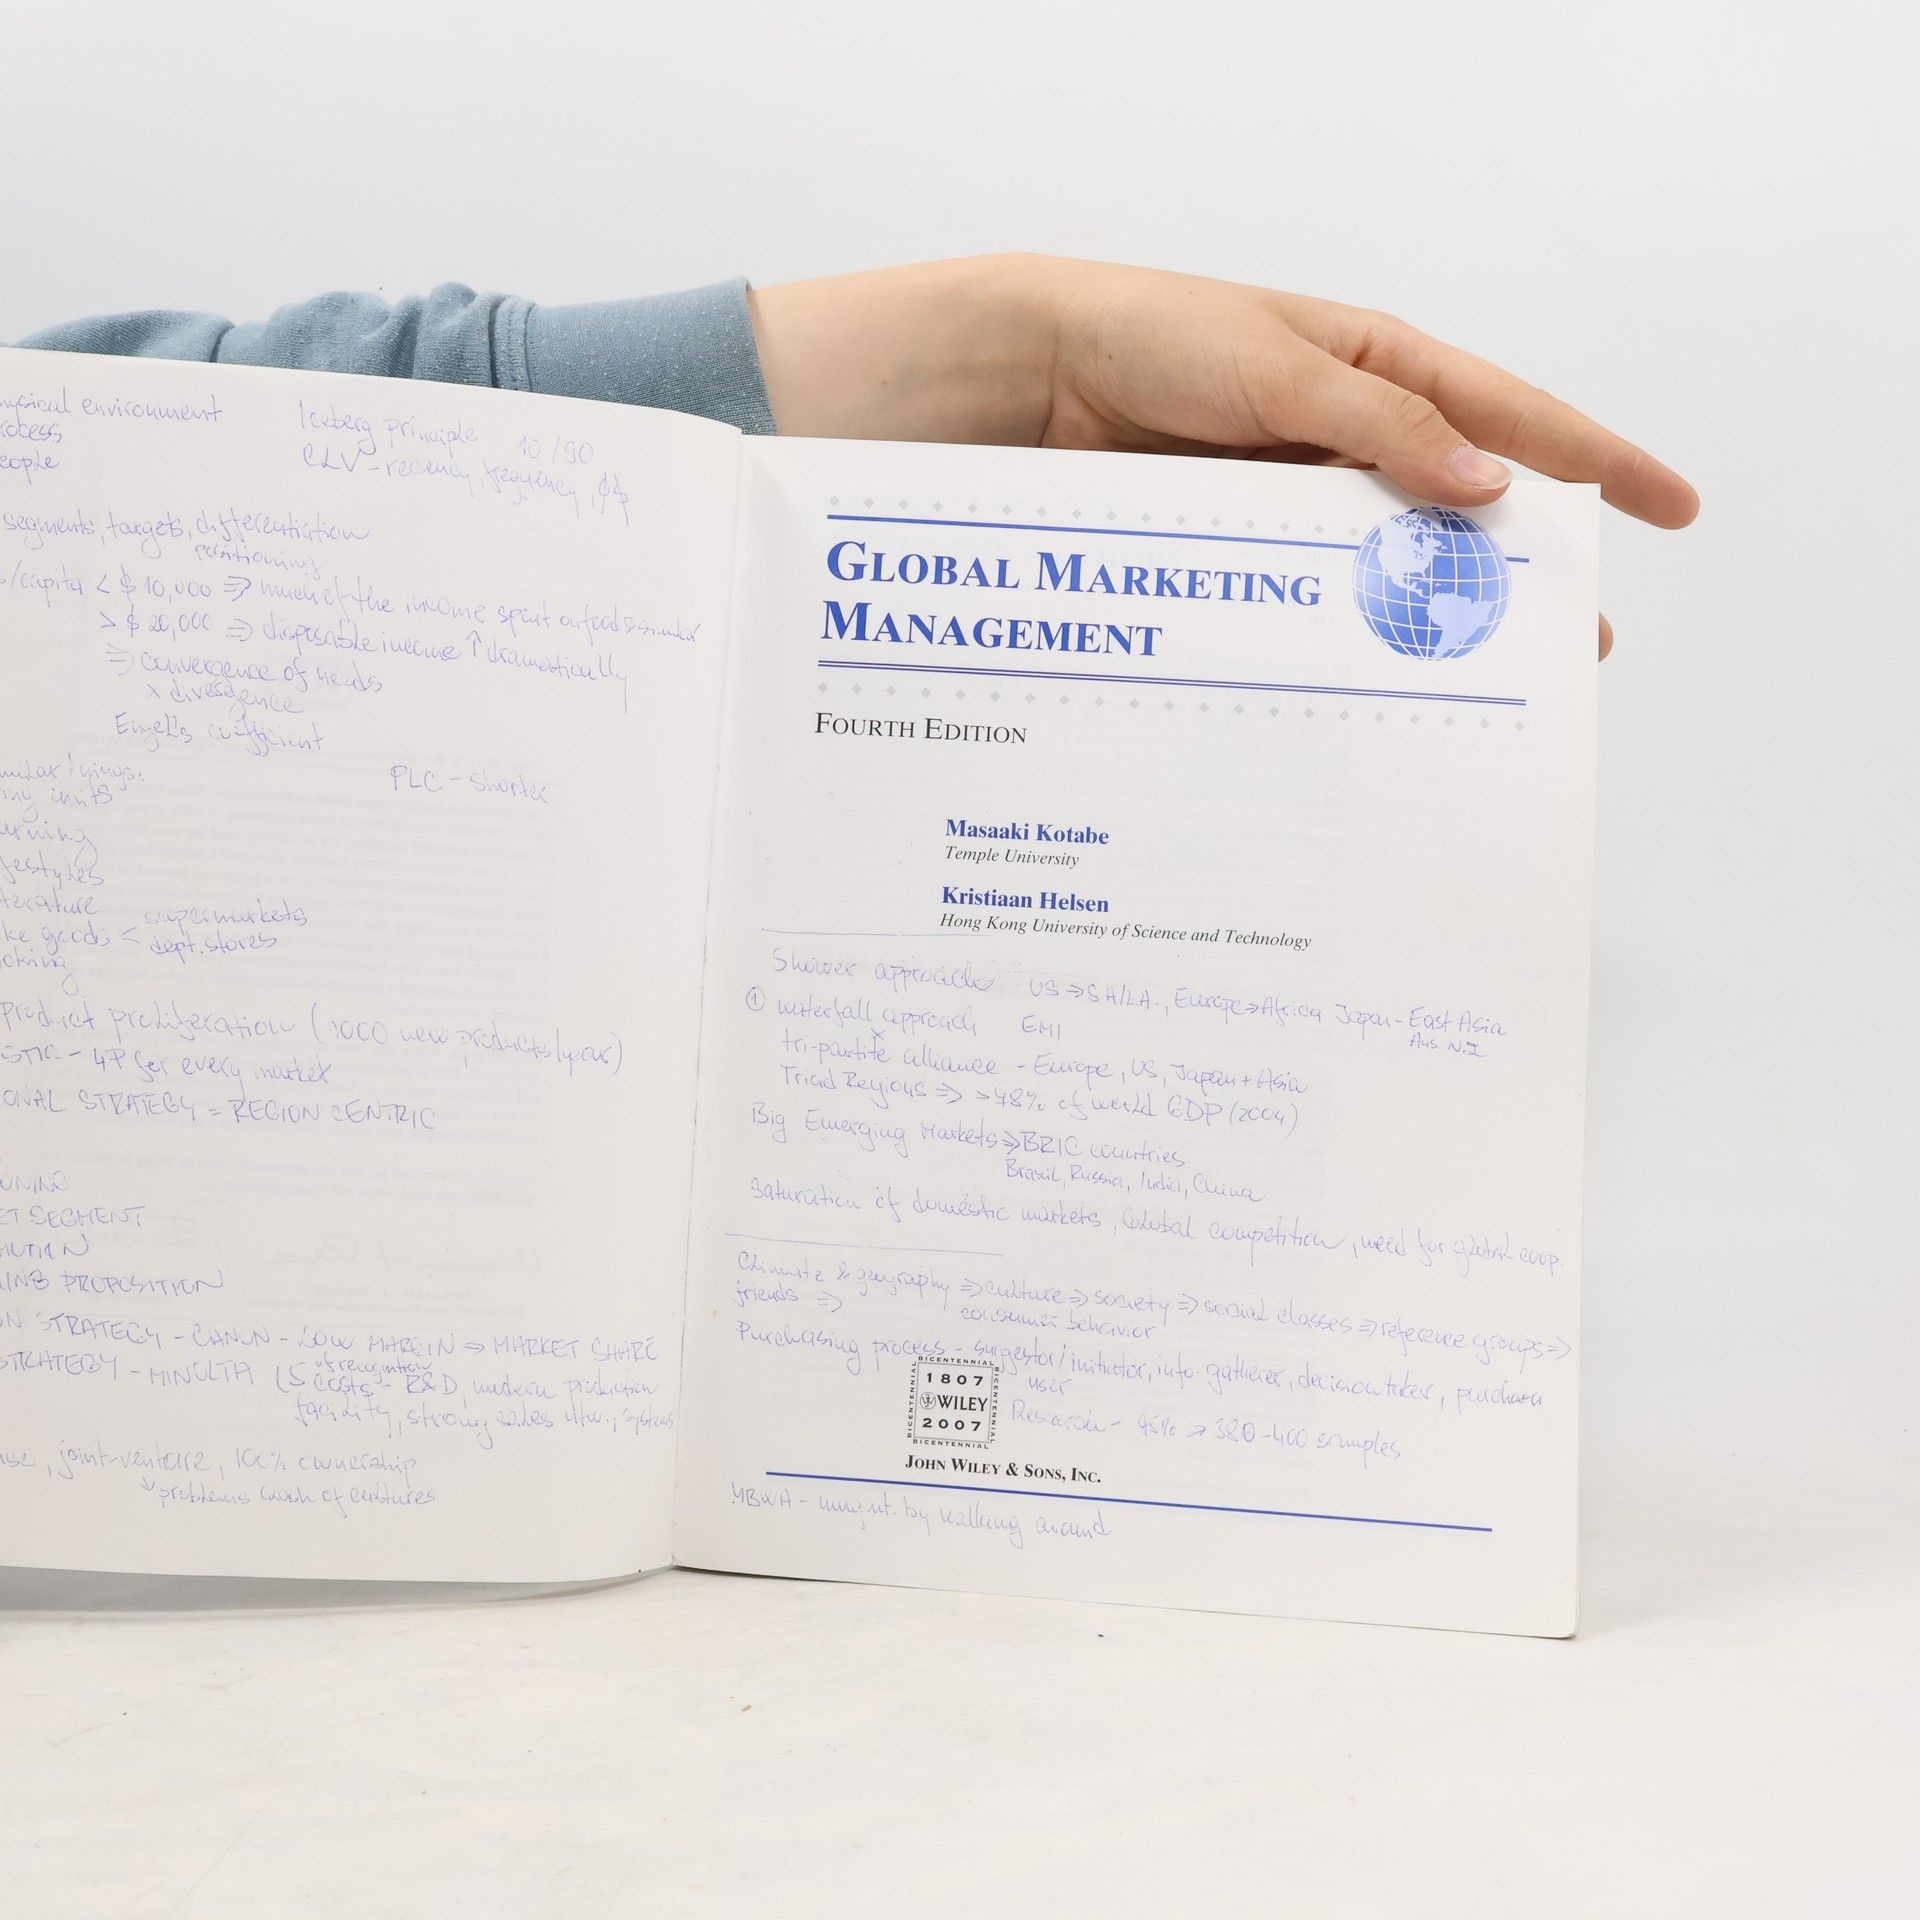 physical environment
Iceberg principle 10/90
process
CLV - recency, frequency, $$
people
segments, targets, differentiation
positioning
/capita < $ 10,000 => much of the income spent on food & similar
> $ 20,000 => disposable income ↑ dramatically
=> convergence of needs
x divergence
Engel's coefficient
PLC - shorter
supermarkets
dept. stores
product proliferation (1000 new products/year)
- 4P for every market
STRATEGY = REGION CENTRIC
SEGMENT
PROPOSITION
STRATEGY - CANON - LOW MARGIN => MARKET SHARE
STRATEGY - MINOLTA (5
costs - R&D, modern production
facility, strong sales ntw., systems
, joint-venture, 100% ownership
↘ problems clash of cultures
GLOBAL MARKETING
MANAGEMENT
FOURTH EDITION
Masaaki Kotabe
Temple University
Kristiaan Helsen
Hong Kong University of Science and Technology
Shower approach US => SA/LA, Europe => Africa Japan - East Asia
Aus. N.Z
① waterfall approach EMI
x
tri-partite alliance - Europe, US, Japan + Asia
Triad Regions => >48% of world GDP (2004)
Big Emerging Markets => BRIC countries
Brasil, Russia, India, China
Saturation of domestic markets, Global competition, need for global coop.
Climate & geography => culture => society => social classes => reference groups =>
friends => consumer behavior
Purchasing process - suggestor/initiator, info-gatherer, decision taker, purchaser
user
Research - 95% → 380-400 samples
BICENTENNIAL
1807
WILEY
2007
BICENTENNIAL
JOHN WILEY & SONS, INC.
MBWA - mngmt. by walking around